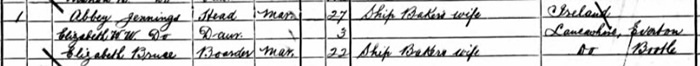 1 Abbey Jennings Head Mar. 27 Ship Bakers wife Ireland
Elizabeth W. W. Do Daur. 3 Lancashire, Everton
Elizabeth Bruse Boarder Mar. 22 Ship Bakers wife Do Bootle